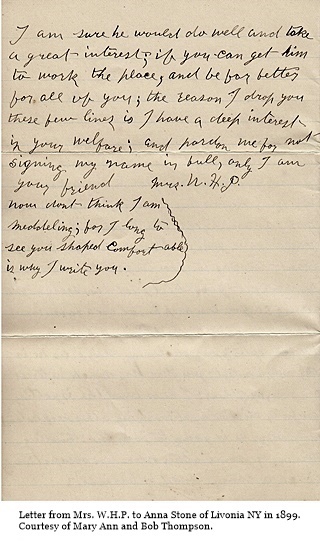 I am sure he would do well and take
a great interest; if you can get him
to work the place, and be far better
for all of you; the reason I drop you
these few lines is I have a deep interest
in your welfare; and pardon me for not
signing my name in full, only I am
your friend Mrs. W. H. P.
now dont think I am
meddeling; for I long to
see you shaped comfort able
is why I write you.
Letter from Mrs. W.H.P. to Anna Stone of Livonia NY in 1899.
Courtesy of Mary Ann and Bob Thompson.